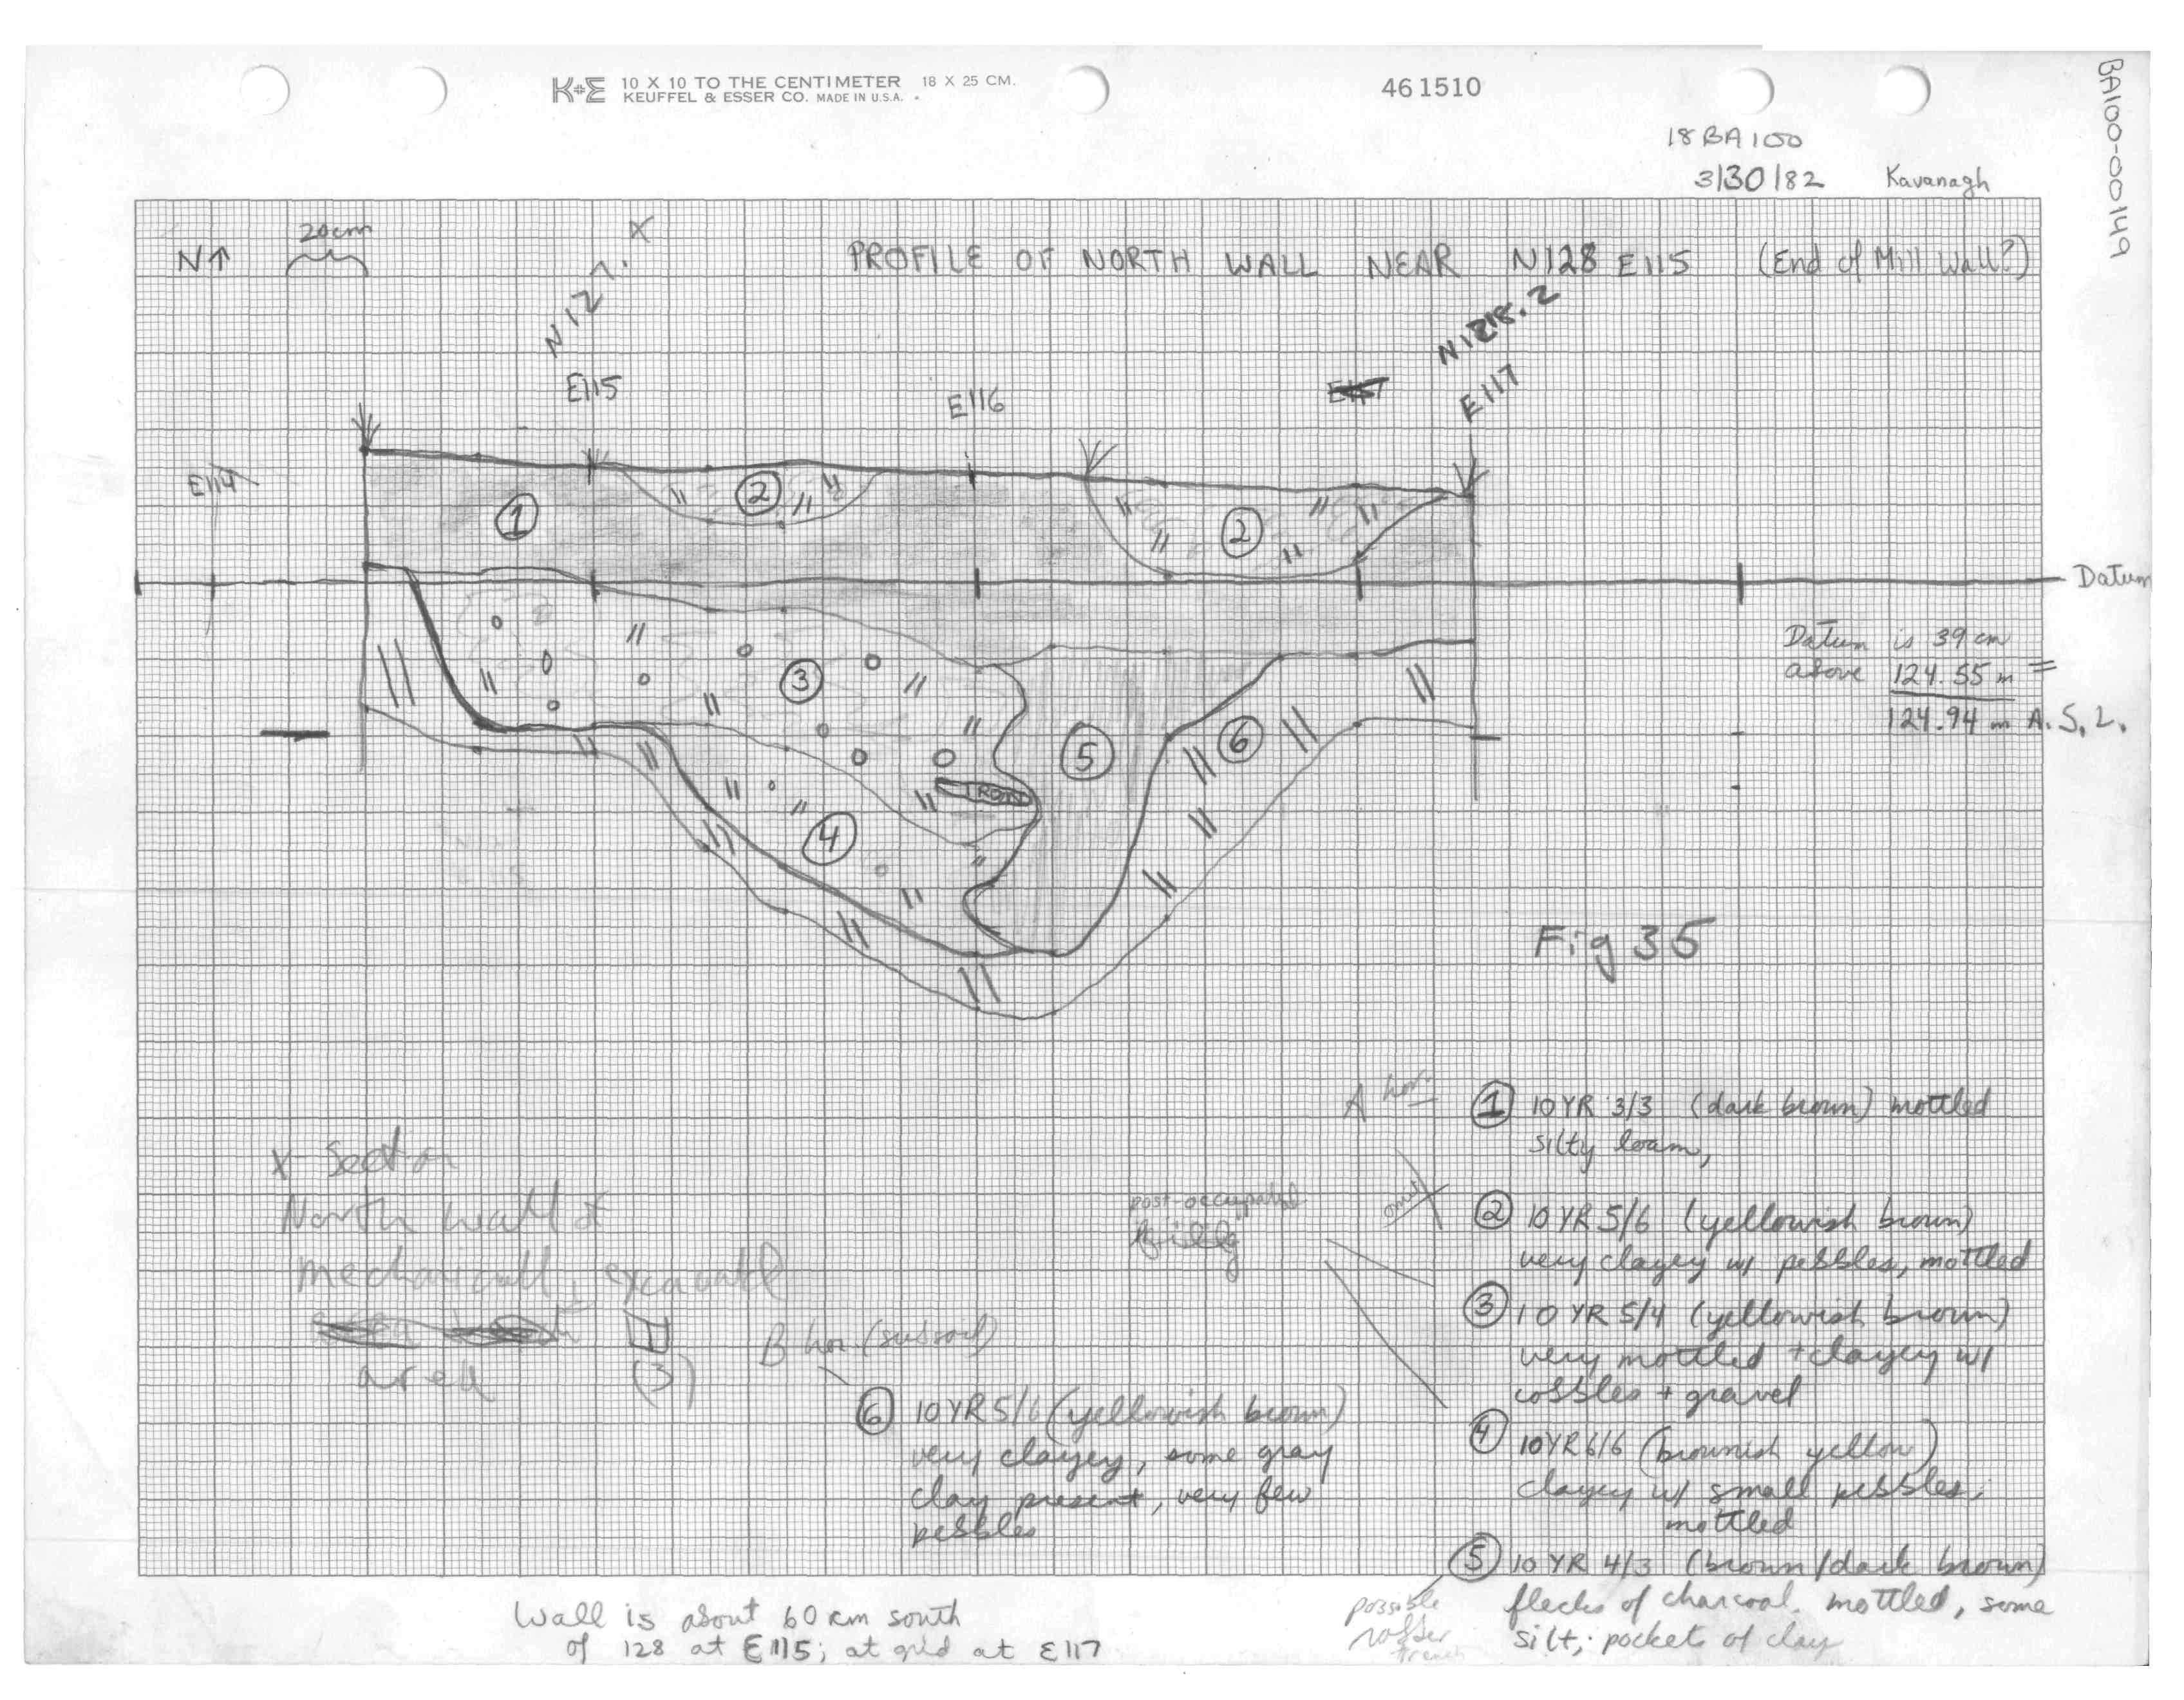 K+E 10 X 10 TO THE CENTIMETER 18 X 25 CM.
KEUFFEL & ESSER CO. MADE IN U.S.A.
461510
BA100-00149
18BA100
3/30/82 Kavanagh
N↑
20cm
X
PROFILE OF NORTH WALL NEAR N128 E115 (End of Mill Wall?)
N128.2
E115
E116
E117
E114
1
2
2
Datum
3
4
IRON
5
6
Datum is 39 cm
above 124.55 m =
124.94 m A.S.L.
Fig 35
A hor.
1 10 YR 3/3 (dark brown) mottled
silty loam,
2 10 YR 5/6 (yellowish brown)
very clayey w/ pebbles, mottled
3 10 YR 5/4 (yellowish brown)
very mottled + clayey w/
cobbles + gravel
4 10YR 6/6 (brownish yellow)
clayey w/ small pebbles,
mottled
5 10 YR 4/3 (brown/dark brown)
flecks of charcoal. mottled, some
silt, pockets of clay
possible
trench
post-occupation
X-Section
North wall of
mechanically excavated
area (3)
B hor. (subsoil)
6 10 YR 5/6 (yellowish brown)
very clayey, some gray
clay present, very few
pebbles
Wall is about 60 cm south
of 128 at E115; at grid at E117